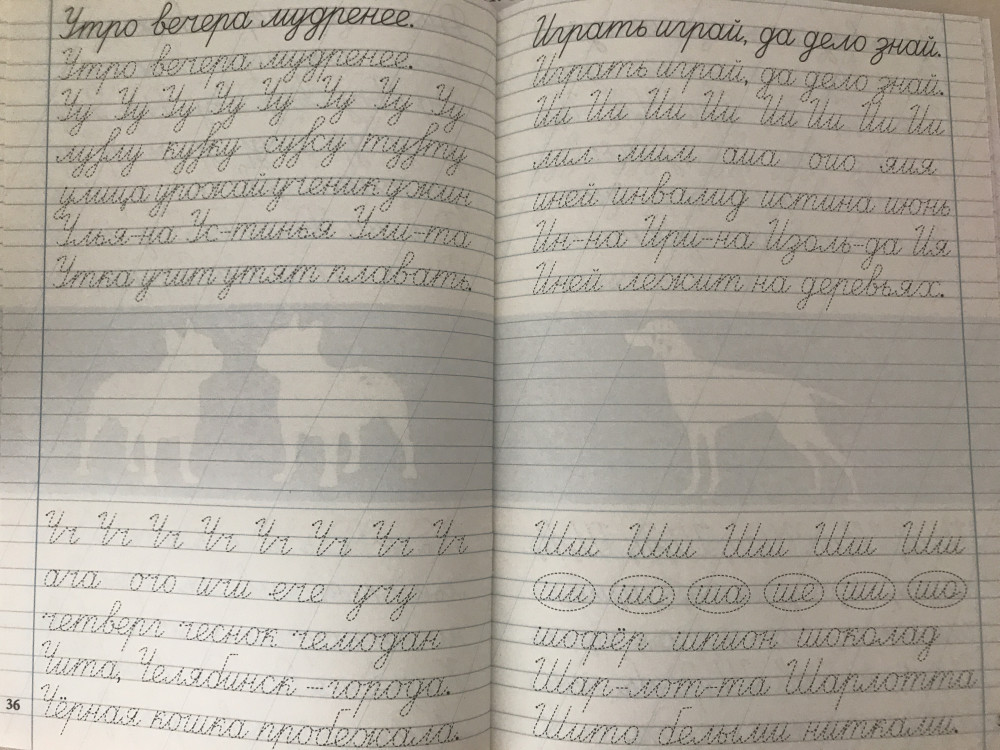 Утро вечера мудренее.
Утро вечера мудренее.
Уу Уу Уу Уу Уу Уу Уу Уу
лувлу кувку сувсу тувту
улица урожай ученик ужин
Улья-на Ус-тинья Ули-та
Утка учит утят плавать.
Чч Чч Чч Чч Чч Чч Чч Чч
ача очо ичи ече учу
четверг чеснок чемодан
Чита, Челябинск – города.
Чёрная кошка пробежала.
36
Играть играй, да дело знай.
Играть играй, да дело знай.
Ии Ии Ии Ии Ии Ии Ии Ии
лил мим аиа оио яия
иней инвалид истина июнь
Ин-на Ири-на Изоль-да Ия
Иней лежит на деревьях.
Шш Шш Шш Шш Шш
ши шо ша ше ши шо
шофёр шпион шоколад
Шар-лот-та Шарлотта
Шито белыми нитками.